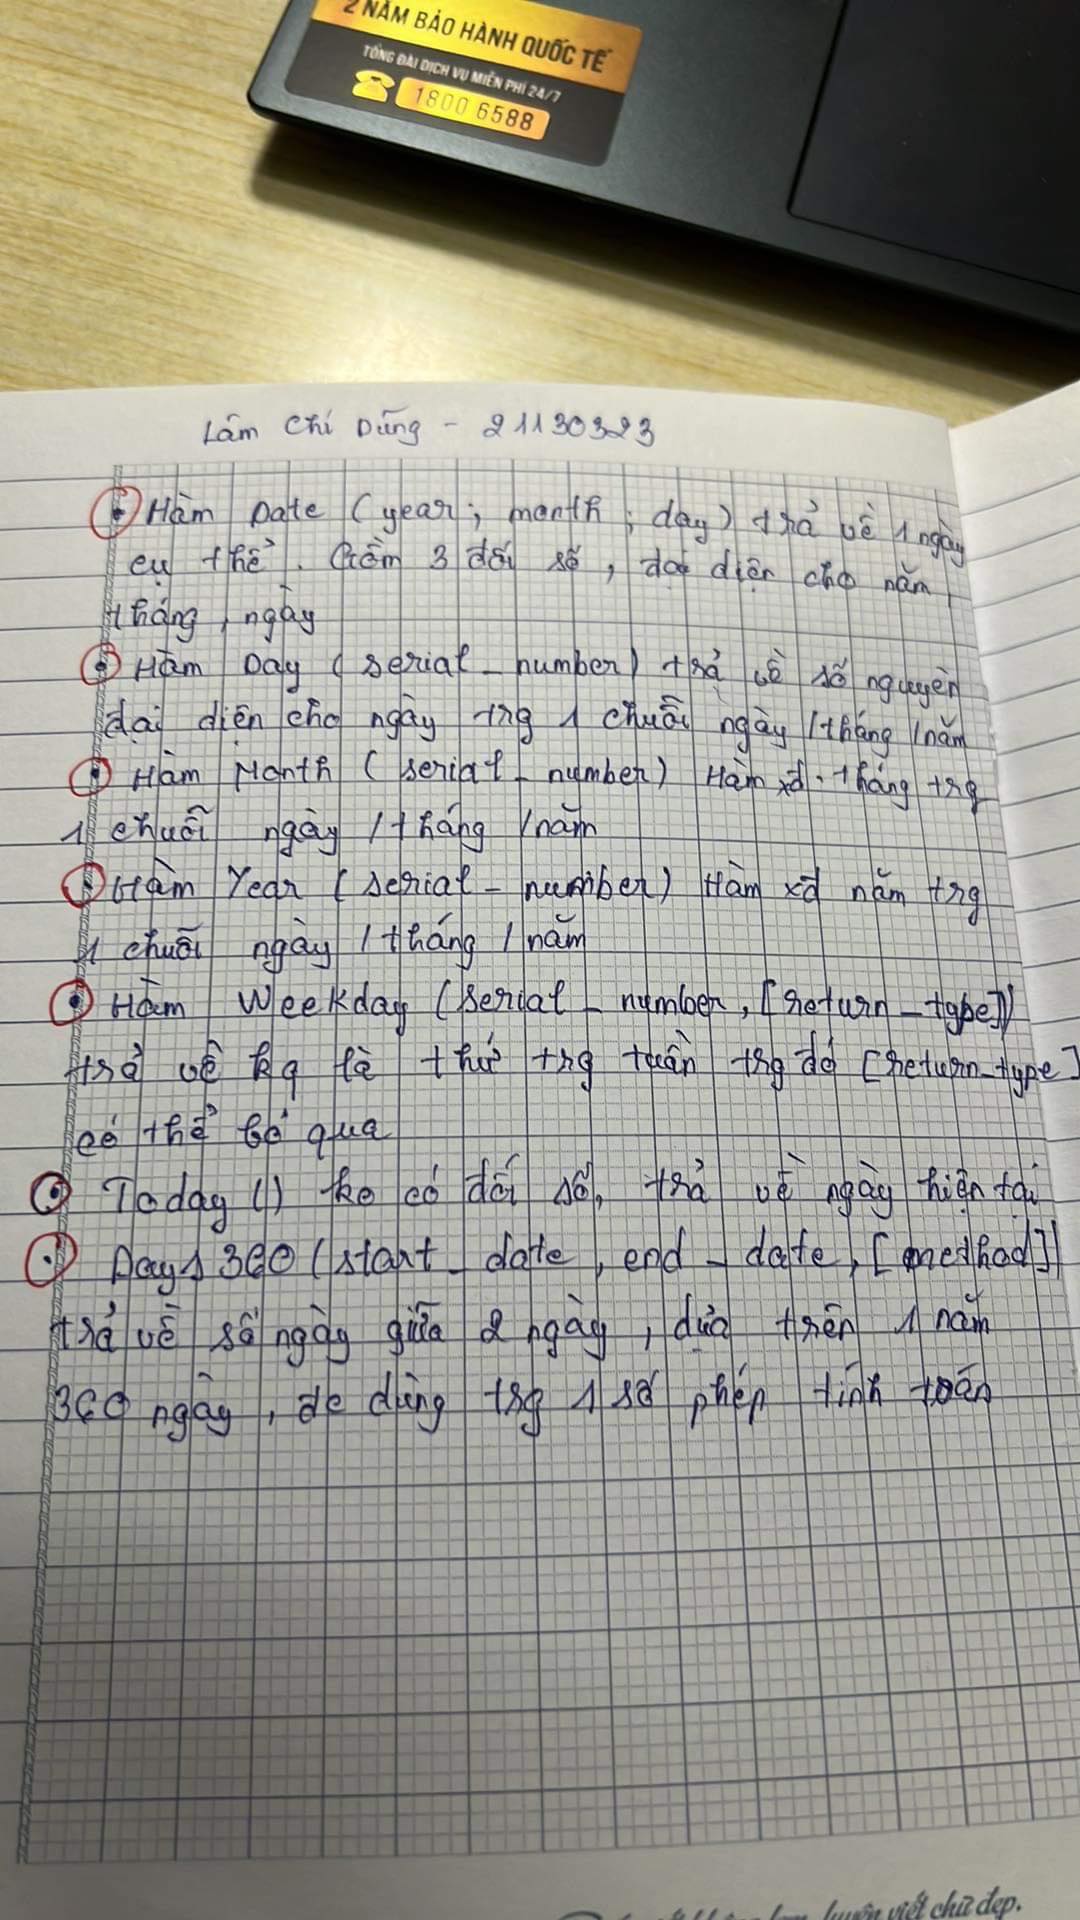 2 NĂM BẢO HÀNH QUỐC TẾ
TỔNG ĐÀI DỊCH VỤ MIỄN PHÍ 24/7
1800 6588
Lâm Chí Dũng - 21130323
Hàm Date (year; month; day) trả về 1 ngày
cụ thể. Gồm 3 đối số, đại diện cho năm,
tháng, ngày
Hàm Day (serial_number) trả về số nguyên
đại diện cho ngày trg 1 chuỗi ngày/tháng/năm
Hàm Month (serial_number) Hàm xđ tháng trg
1 chuỗi ngày/tháng/năm
Hàm Year (serial_number) Hàm xđ năm trg
1 chuỗi ngày/tháng/năm
Hàm Weekday (serial_number, [return_type])
trả về kq là thứ trg tuần trg đó [return_type]
có thể bỏ qua
Today () ko có đối số, trả về ngày hiện tại
Days 360 (start_date, end_date, [method])
trả về số ngày giữa 2 ngày, dựa trên 1 năm
360 ngày, dc dùng trg 1 số phép tính toán
luyện viết chữ đẹp.